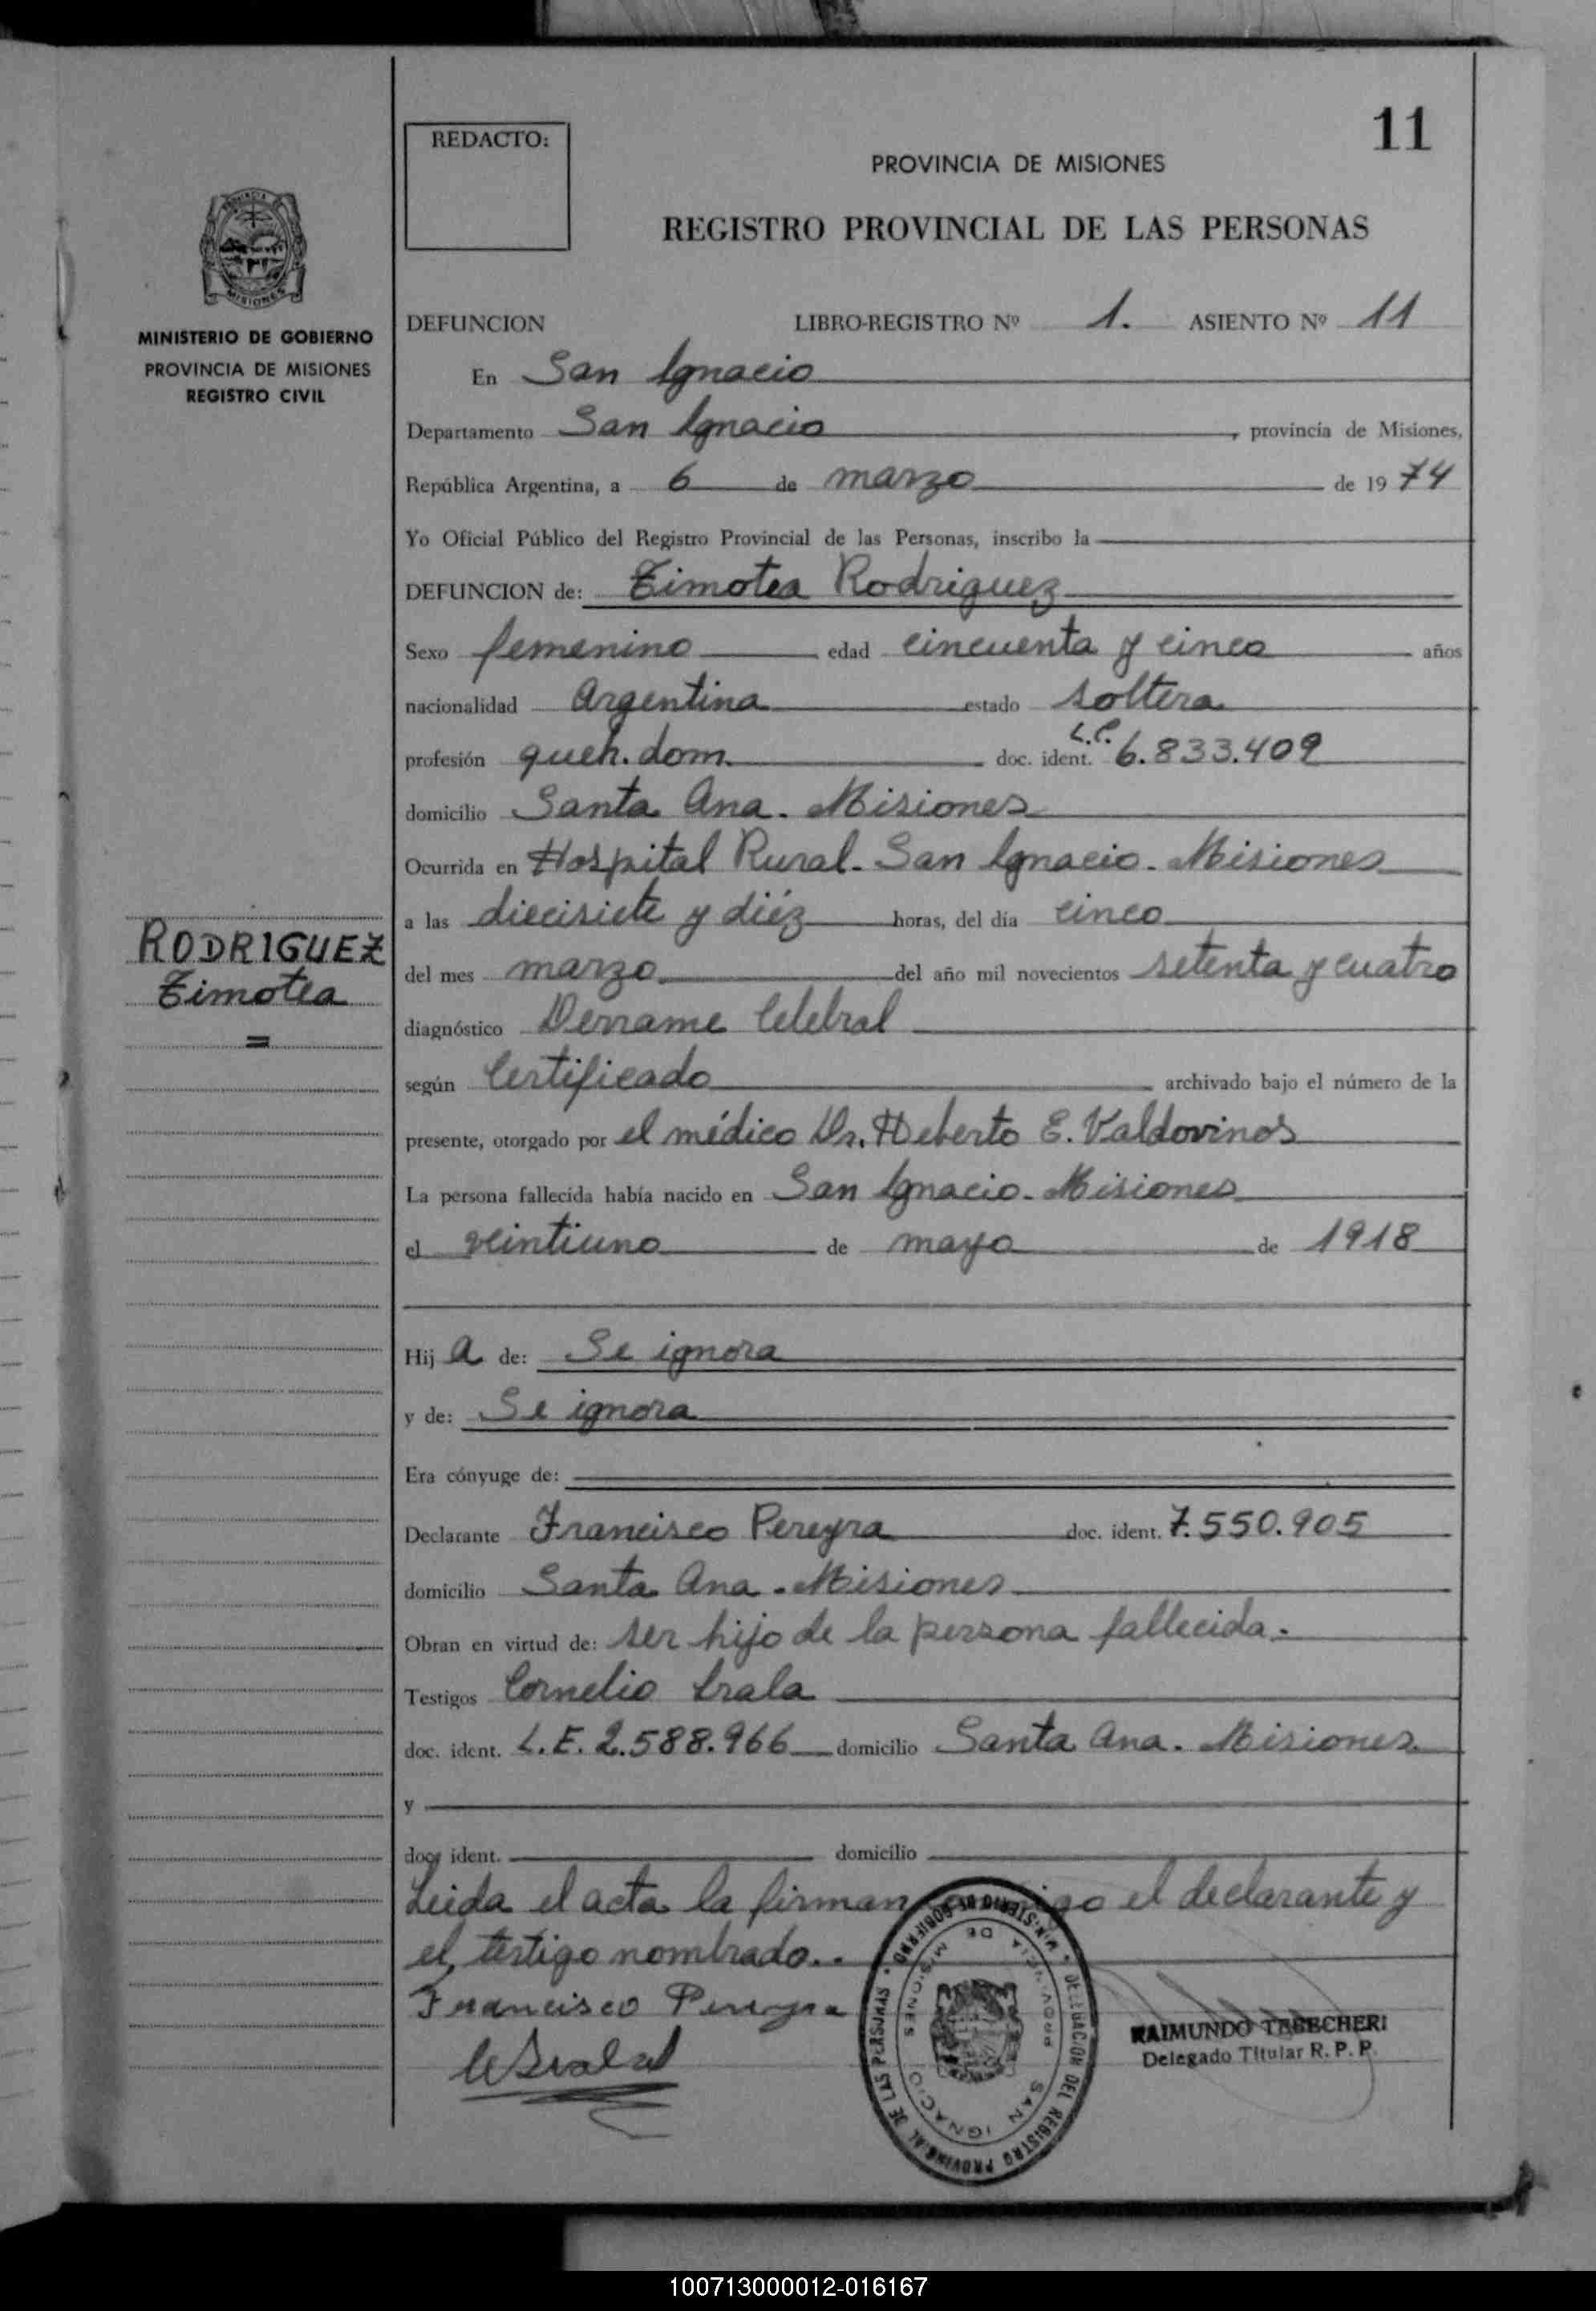 11
REDACTO:
PROVINCIA DE MISIONES
REGISTRO PROVINCIAL DE LAS PERSONAS
MINISTERIO DE GOBIERNO
PROVINCIA DE MISIONES
REGISTRO CIVIL
DEFUNCION LIBRO-REGISTRO Nº 1. ASIENTO Nº 11
En San Ignacio
Departamento San Ignacio, provincia de Misiones,
República Argentina, a 6 de marzo de 1974
Yo Oficial Público del Registro Provincial de las Personas, inscribo la
DEFUNCION de: Timotea Rodriguez
Sexo femenino edad cincuenta y cinco años
nacionalidad Argentina estado soltera
profesión queh. dom. doc. ident. L.C. 6.833.409
domicilio Santa Ana. Misiones
Ocurrida en Hospital Rural. San Ignacio. Misiones
a las diecisiete y diéz horas, del día cinco
RODRIGUEZ
Timotea
=
del mes marzo del año mil novecientos setenta y cuatro
diagnóstico Derrame Celebral
según Certificado archivado bajo el número de la
presente, otorgado por el médico Dr. Heberto E. Valdovinos
La persona fallecida había nacido en San Ignacio. Misiones
el veintiuno de mayo de 1918
Hija de: Se ignora
y de: Se ignora
Era cónyuge de:
Declarante Francisco Pereyra doc. ident. 7.550.905
domicilio Santa Ana. Misiones
Obran en virtud de: ser hijo de la persona fallecida.
Testigos Cornelio Irala
doc. ident. L.E. 2.588.966 domicilio Santa Ana. Misiones
y
doc. ident. domicilio
Leida el acta la firman el declarante y
el testigo nombrado..
Francisco Pereyra
MINISTERIO DE GOBIERNO • DELEGACION DEL REGISTRO PROVINCIAL DE LAS PERSONAS •
PROVINCIA DE MISIONES
SAN IGNACIO
RAIMUNDO TABECHERI
Delegado Titular R. P. P.
100713000012-016167